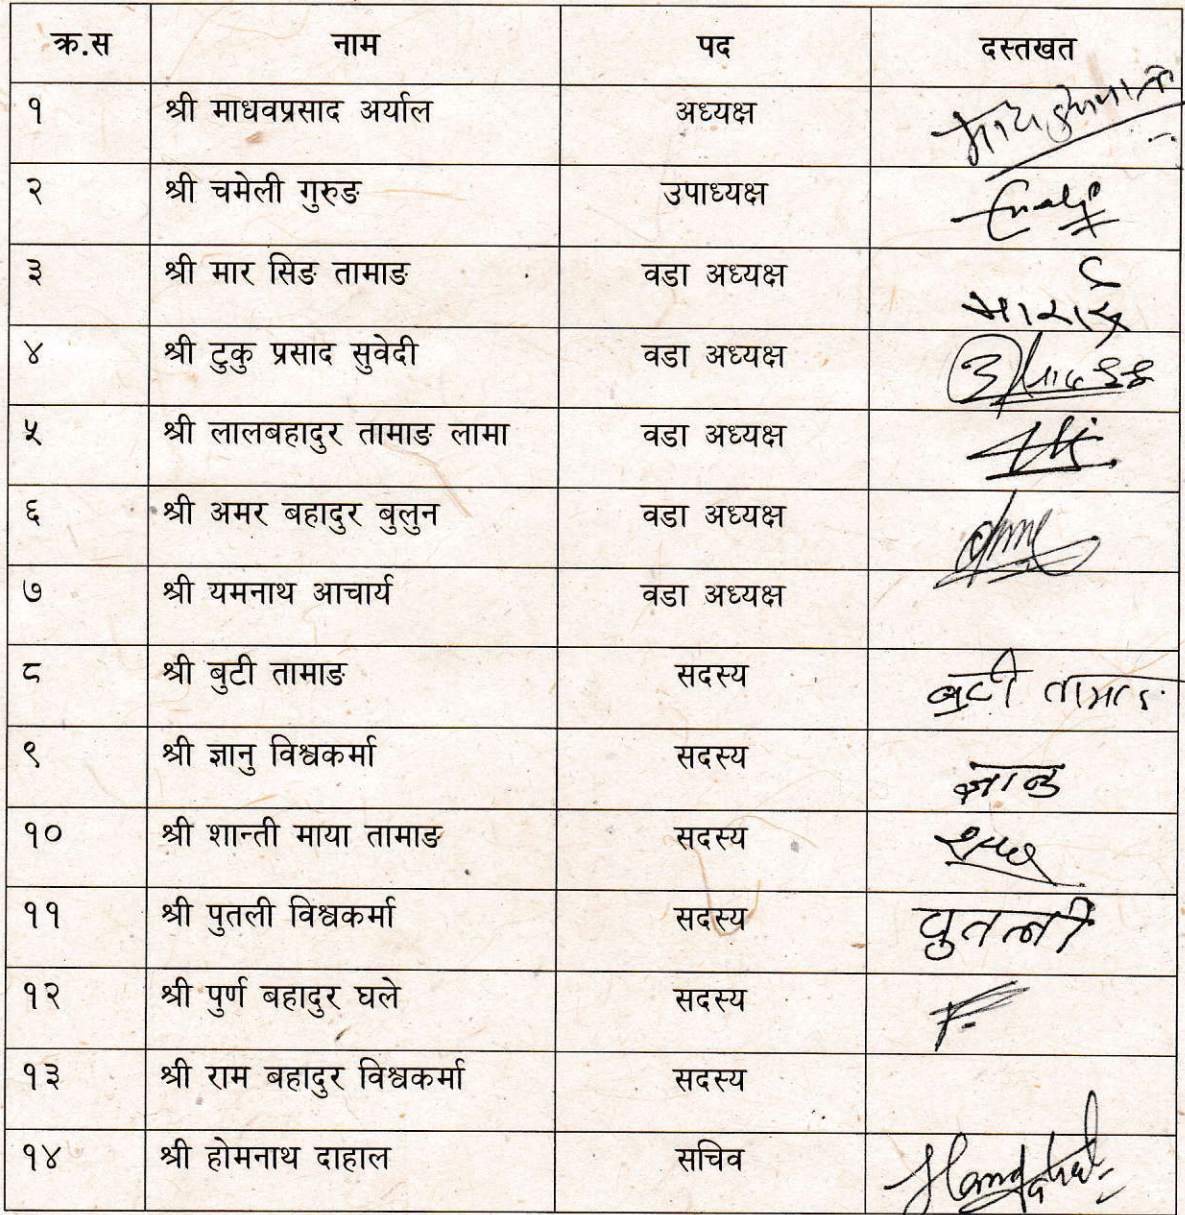 क्र.स नाम पद दस्तखत
१ श्री माधवप्रसाद अर्याल अध्यक्ष
२ श्री चमेली गुरुङ उपाध्यक्ष
३ श्री मार सिङ तामाङ वडा अध्यक्ष
४ श्री टुकु प्रसाद सुवेदी वडा अध्यक्ष
५ श्री लालबहादुर तामाङ लामा वडा अध्यक्ष
६ श्री अमर बहादुर बुलुन वडा अध्यक्ष
७ श्री यमनाथ आचार्य वडा अध्यक्ष
८ श्री बुटी तामाङ सदस्य बुटी तामाङ
९ श्री ज्ञानु विश्वकर्मा सदस्य ज्ञानु
१० श्री शान्ती माया तामाङ सदस्य
११ श्री पुतली विश्वकर्मा सदस्य पुतली
१२ श्री पुर्ण बहादुर घले सदस्य
१३ श्री राम बहादुर विश्वकर्मा सदस्य
१४ श्री होमनाथ दाहाल सचिव